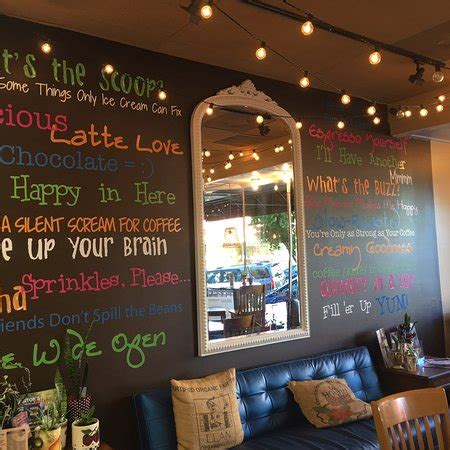 t's the Scoop?
Some Things Only Ice Cream Can Fix
cious
Latte Love
Chocolate = :)
Happy in Here
A SILENT SCREAM FOR COFFEE
e up Your Brain
Sprinkles, Please...
ha
riends Don't Spill the Beans
e Wide Open
Espresso Yourself
I'll Have Another
Mmmm
What's the Buzz?
Happy
You're Only as Strong as Your Coffee
Creamy Goodness
in a cup
Fill 'er Up
YUM!